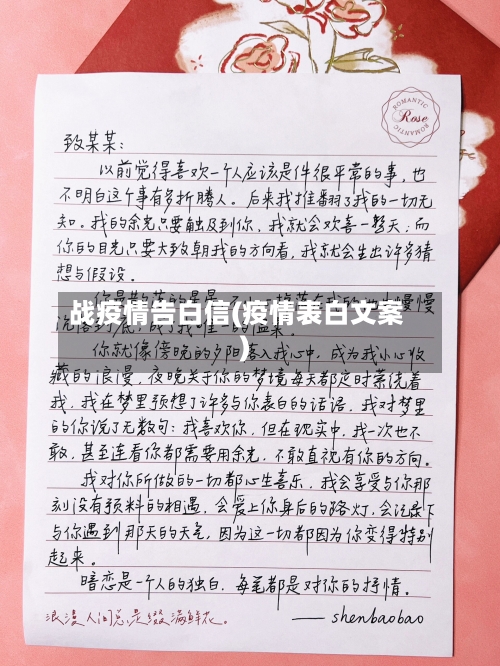 ROMANTIC
Rose
ROMANTIC
致某某：
以前觉得喜欢一个人应该是件很平常的事，也
不明白这个事有多折腾人。后来我推翻了我的一切无
知。我的余光只要触及到你，我就会欢喜一整天；而
你的目光只要大致朝我的方向看，我就会生出许多猜
想与假设。
慢慢
战疫情告白信(疫情表白文案
)
你就像傍晚的夕阳落入我心中，成为我小心收
藏的浪漫，夜晚关于你的梦境每天都定时萦绕着
我，我在梦里预想了许多与你表白的话语，我对梦里
的你说了无数句：我喜欢你，但在现实中，我一次也不
敢，甚至连看你都需要用余光，不敢直视有你的方向。
我对你所做的一切都心生喜乐，我会享受与你那
刻没有预料的相遇，会爱上你身后的路灯，会记下
与你遇到那天的天气，因为这一切都因为你变得特别
起来。
暗恋是一个人的独白，每笔都是对你的抒情。
浪漫人间总是缀满鲜花。
——shenbaobao